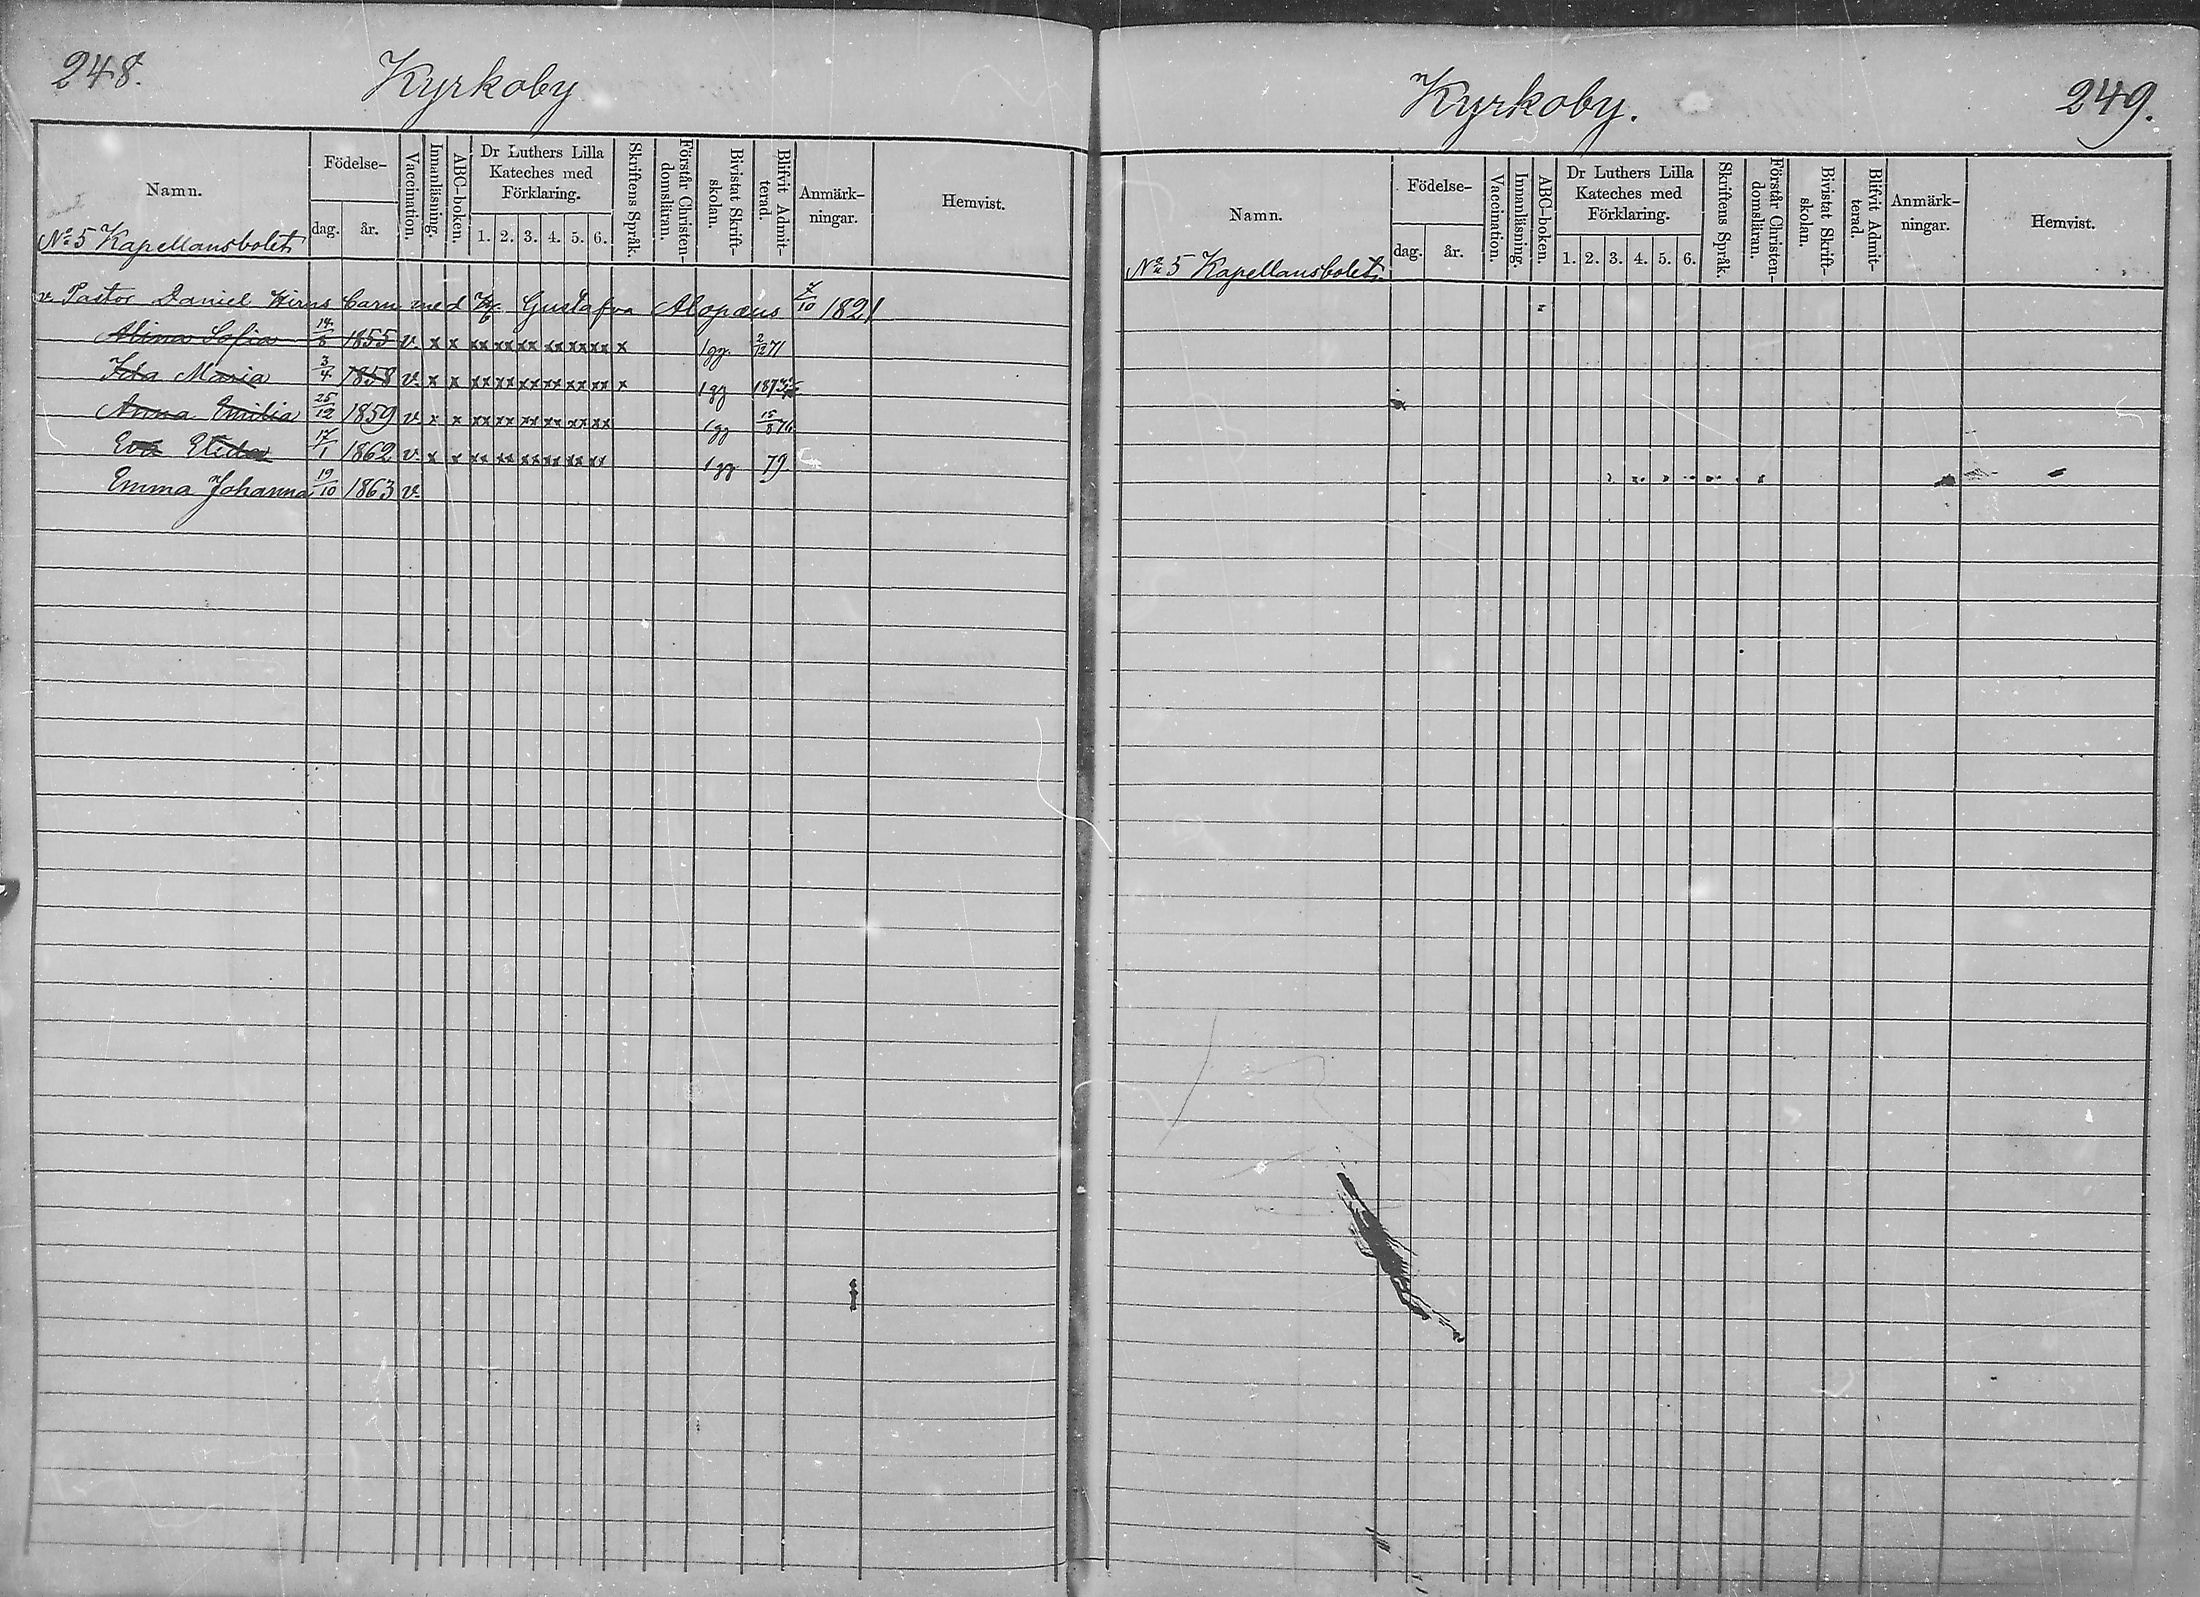 248. Kyrkoby
Namn. Födelse- dag. år. Vaccination. Innanläsning. ABC-boken. Dr Luthers Lilla Kateches med Förklaring. 1. 2. 3. 4. 5. 6. Skriftens Språk. Förstår Christen-domsläran. Bivistat Skrift-skolan. Blifvit Admit-terad. Anmärk-ningar. Hemvist.
No 5 Kapellansbolet
v. Pastor Daniel barn med Gustafva Alopæus 7/10 1821
Alina Sofia 1855 v. x x xx xx xx xx xx xx x 1 gg. 2/12 71
Ida Maria 3/4 1858 v. x x xx xx xx xx xx xx x 1 gg 1873
Anna Emilia 25/12 1859 v. x x xx xx xx xx xx xx 1 gg
Eva 17/1 1862 v. x x xx xx xx xx xx xx 1 gg 79
Emma Johanna 19/10 1863 v.
Kyrkoby. 249.
Namn. Födelse- dag. år. Vaccination. Innanläsning. ABC-boken. Dr Luthers Lilla Kateches med Förklaring. 1. 2. 3. 4. 5. 6. Skriftens Språk. Förstår Christen-domsläran. Bivistat Skrift-skolan. Blifvit Admit-terad. Anmärk-ningar. Hemvist.
No 5 Kapellansbolet